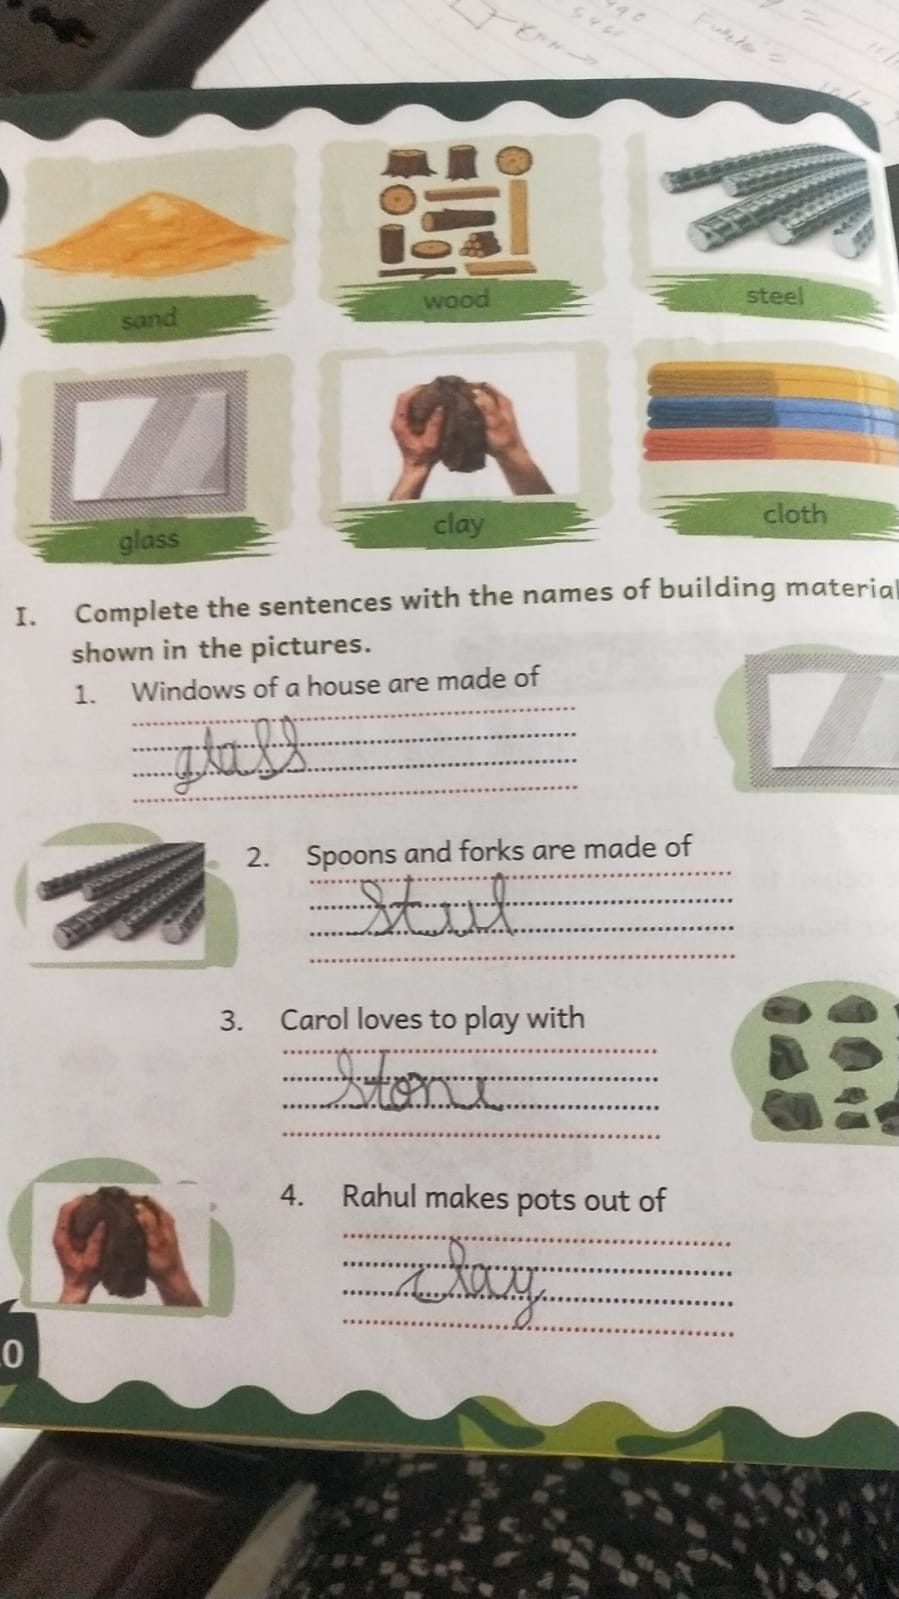 sand
wood
steel
glass
clay
cloth
I. Complete the sentences with the names of building material
shown in the pictures.
1. Windows of a house are made of
glass
2. Spoons and forks are made of
Steel
3. Carol loves to play with
Stone
4. Rahul makes pots out of
clay
0